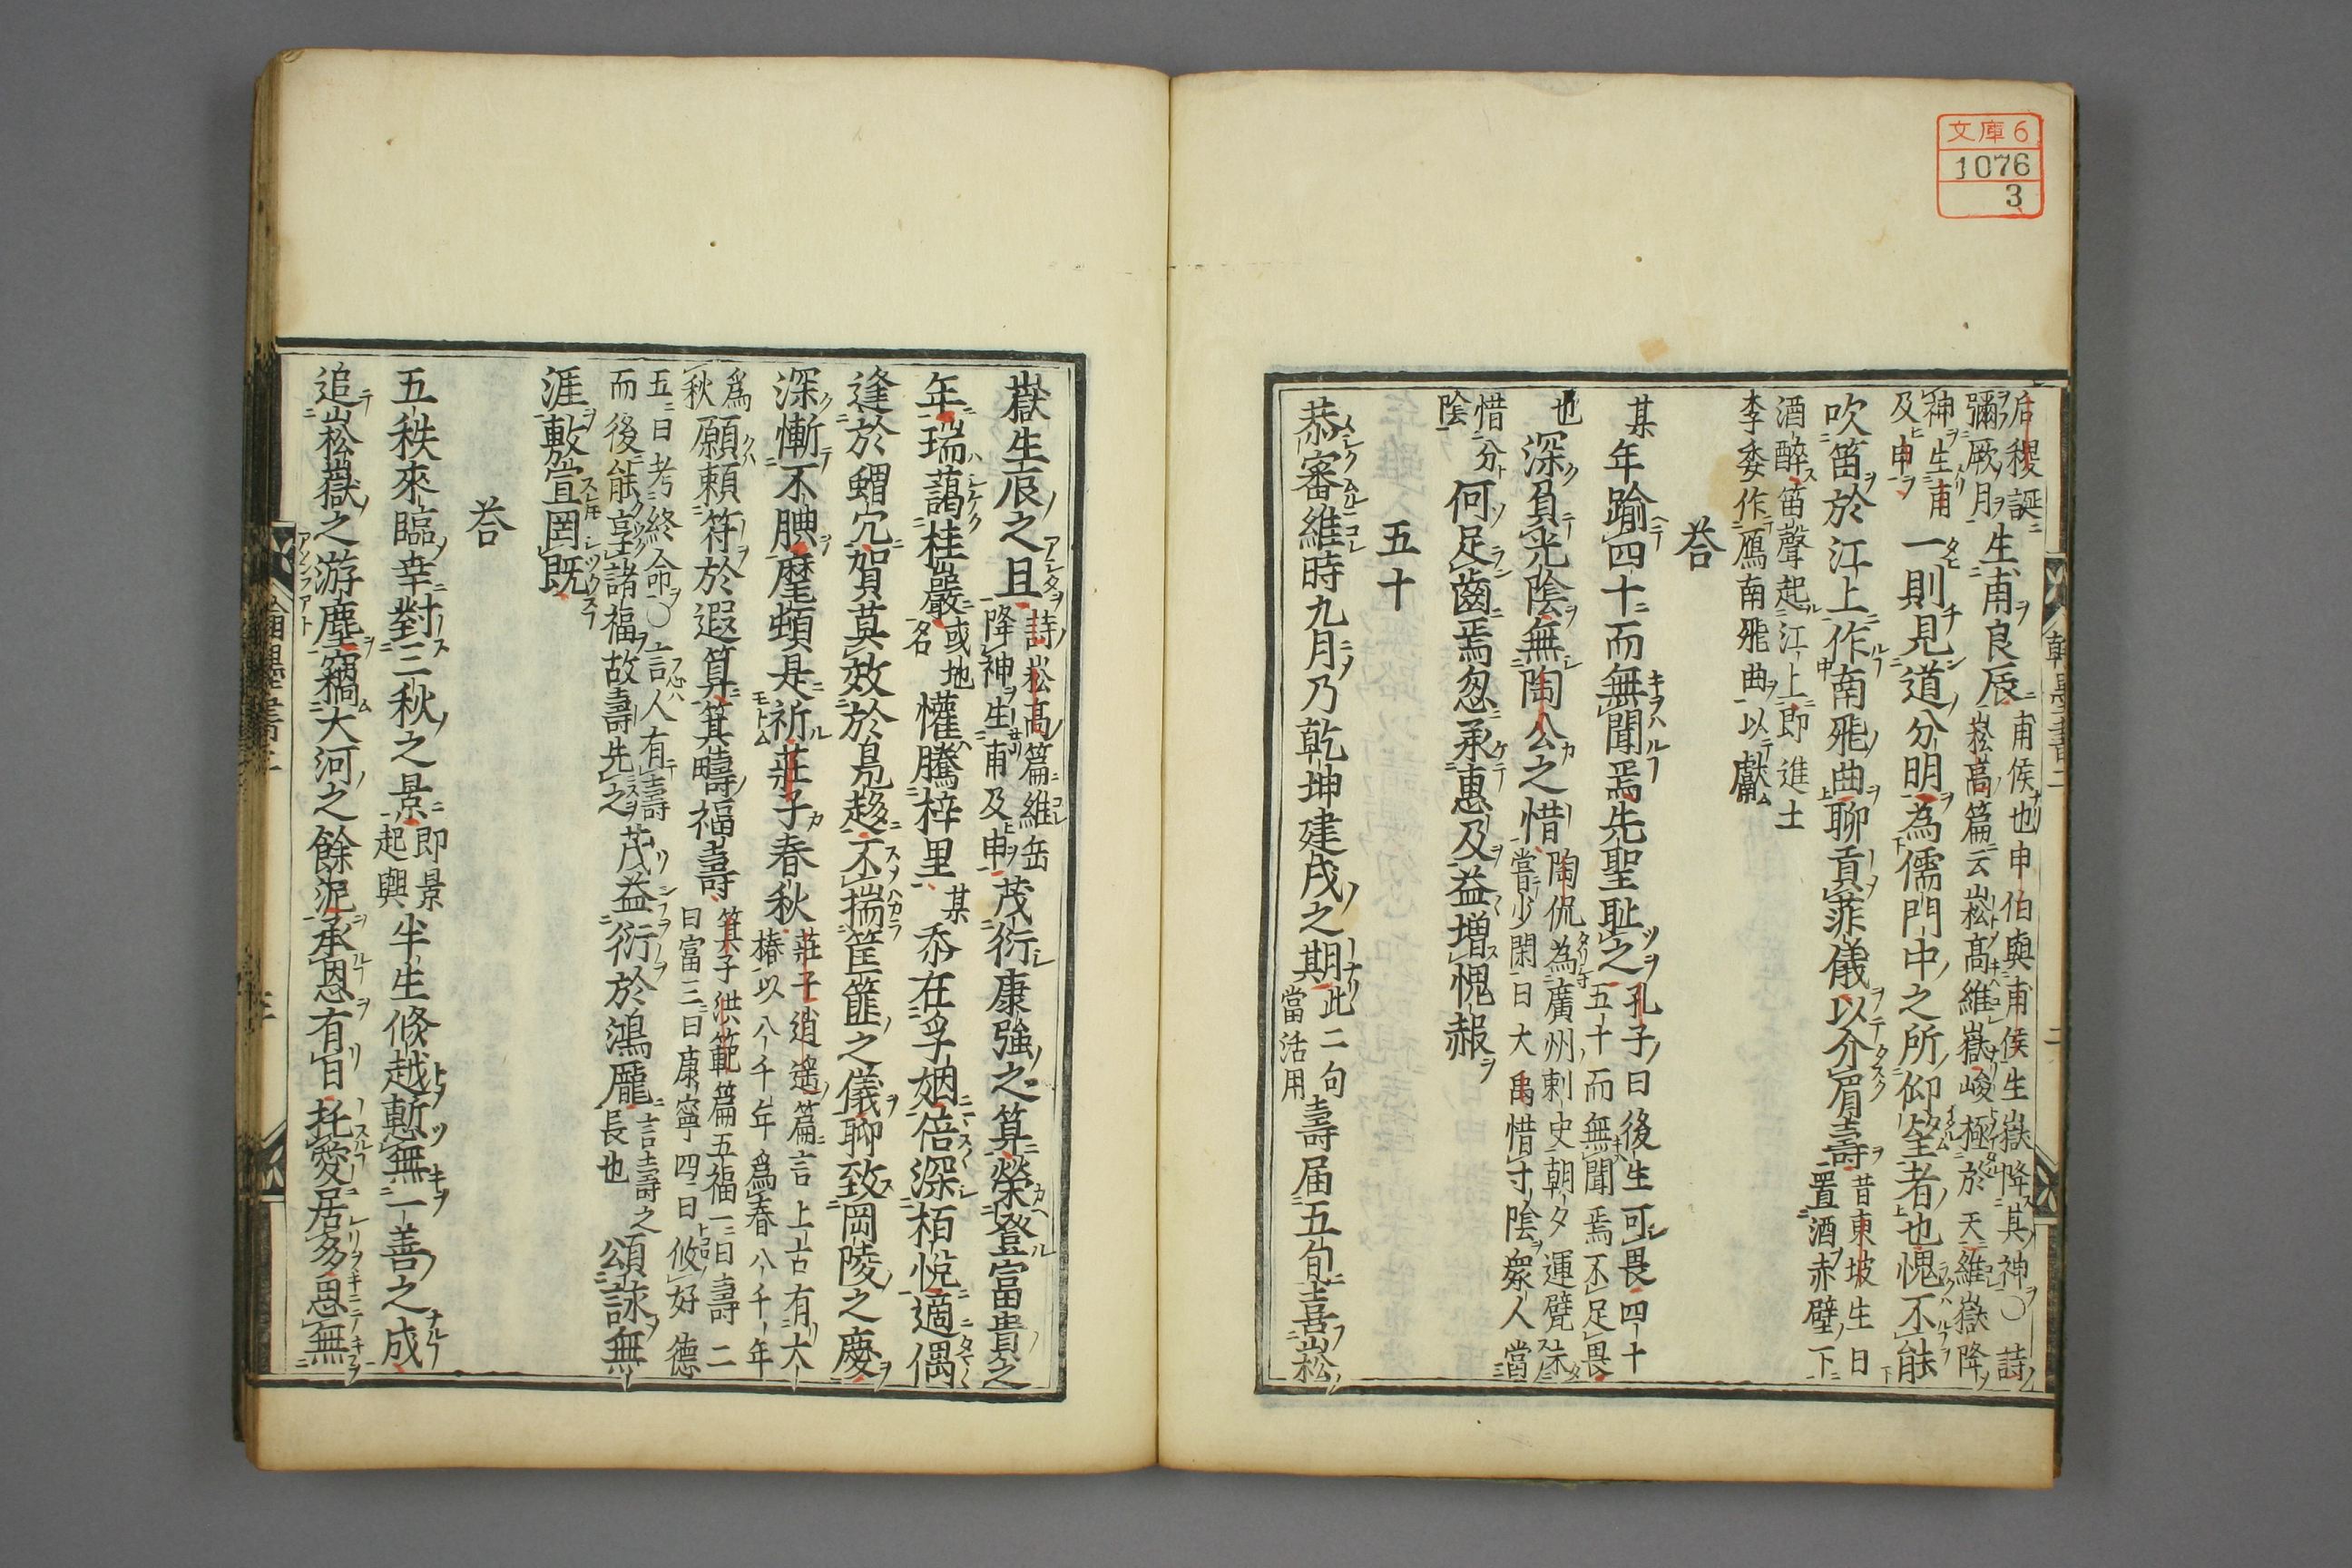 文庫6
1076
3
后稷誕
彌厥月
生甫良辰
甫侯也申伯與甫侯生嶽降其神〇詩
崧高篇云崧高維嶽峻極於天維嶽降
神生甫
及申
一則見道分明為儒門中之所仰望者也愧不能
吹笛於江上作南飛曲聊貢菲儀以介眉壽
昔東坡生日
置酒赤壁下
酒醉笛聲起江上即進士
李委作鴈南飛曲以獻
荅
某年踰四十而無聞焉先聖耻之
孔子曰後生可畏四十
五十而無聞焉不足畏
也
深負光陰無陶公之惜
陶侃為廣州刺史朝夕運甓
嘗少閑曰大禹惜寸陰衆人當
惜分
陰
何足齒焉忽承惠及益增愧赧
五十
恭審維時九月乃乾坤建戌之期
此二句
當活用
壽届五旬喜崧
翰墨書二
二
嶽生辰之旦
詩崧高篇維岳
降神生甫及申
茂衍康強之算榮登富貴之
年瑞藹桂嚴
或地
名
懽騰梓里某忝在孚姻倍深栢悅適偶
逢於蝟宂賀莫效於鳧趍不揣筐篚之儀聊致岡陵之慶
深慚不腆麾頓是祈莊子春秋
莊子逍遙篇言上古有大
椿以八千年爲春八千年
爲
秋
願頼符於遐算箕疇福壽
箕子洪範篇五福一曰壽二
曰富三曰康寧四曰攸好德
五曰考終命〇言人有壽
而後能享諸福故壽先之
茂益衍於鴻厖
言壽之
長也
頌詠無
涯敷萱罔既
荅
五秩來臨幸對三秋之景
即景
起興
半生倐越慙無一善之成
追崧嶽之游塵竊大河之餘泥承恩有自托愛居多思無